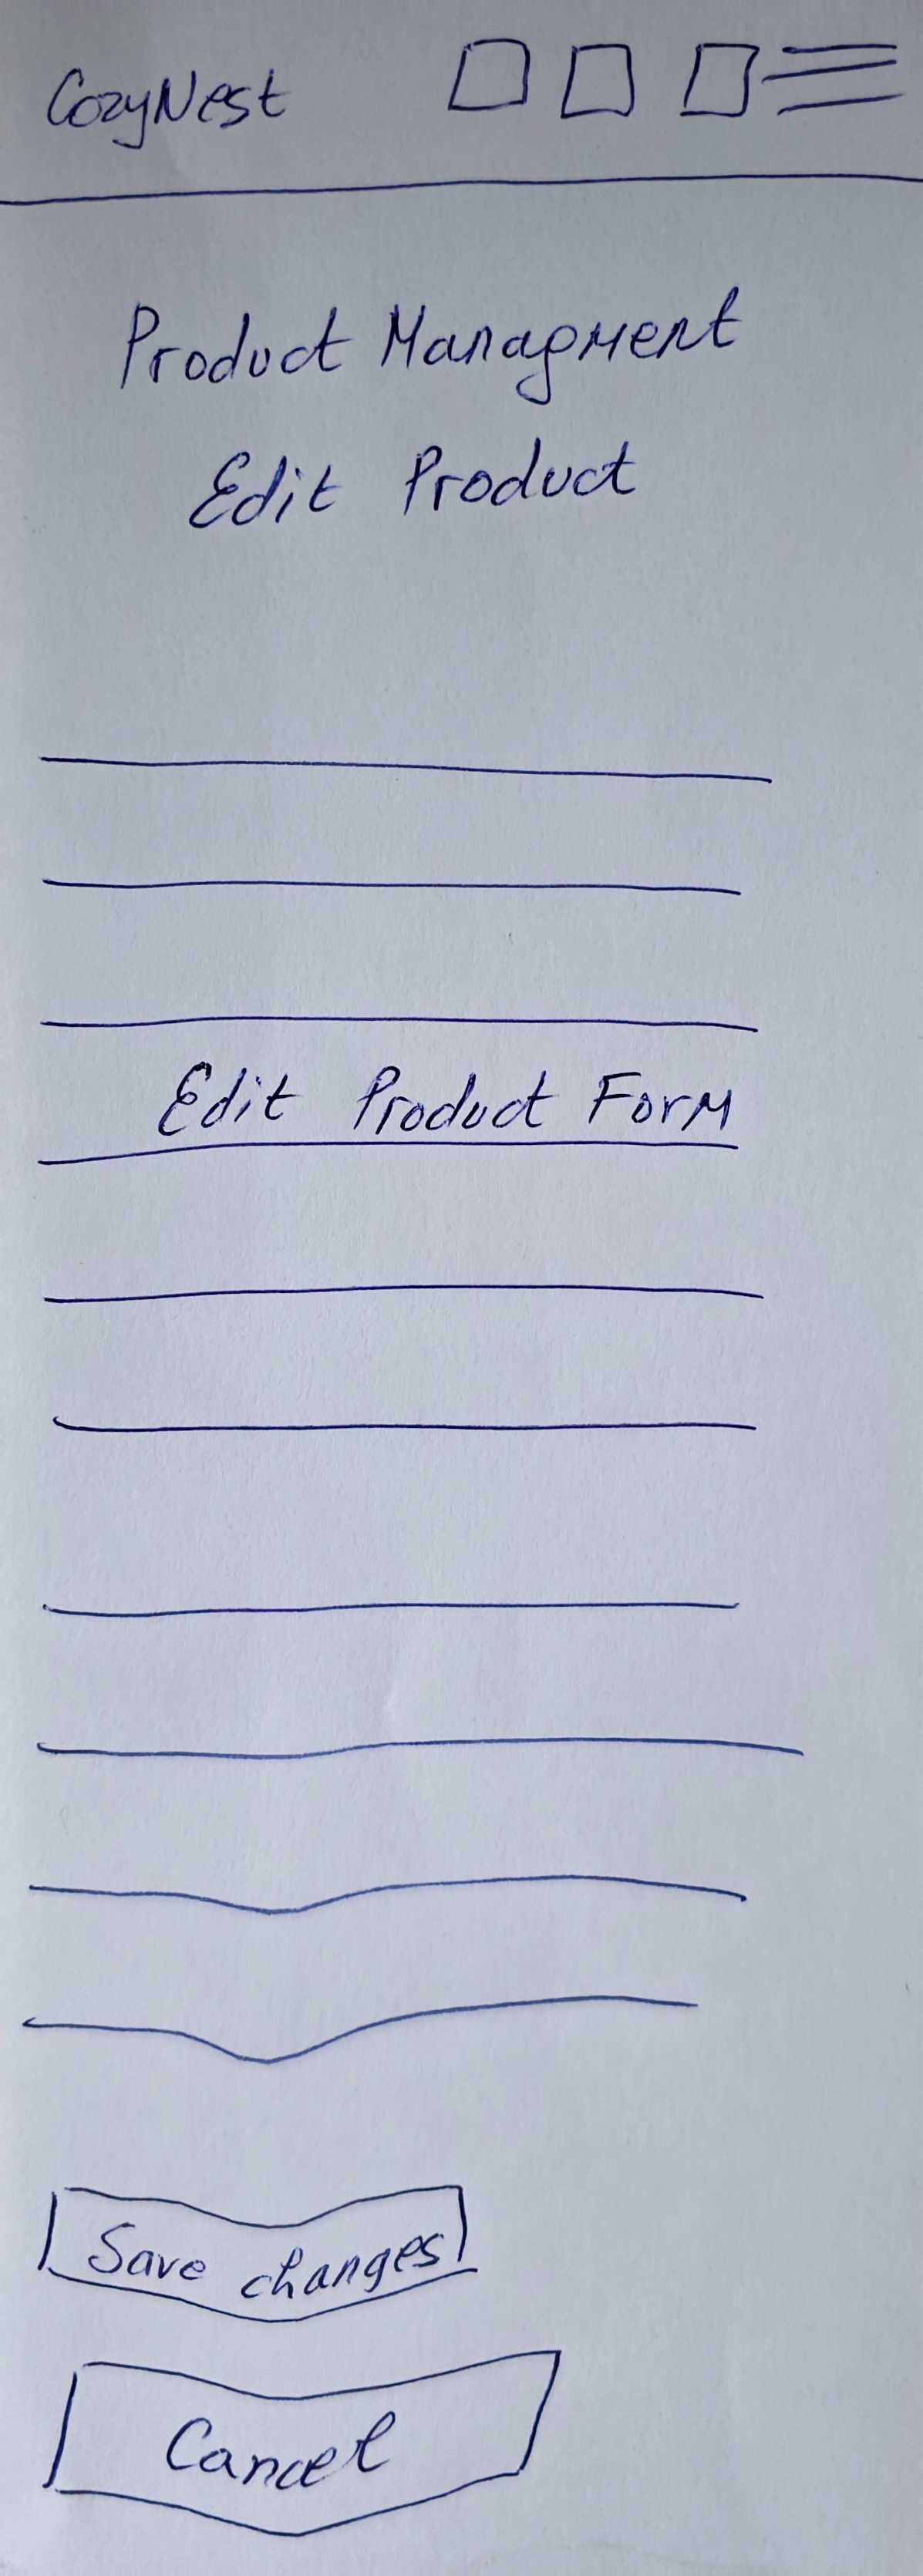 CozyNest
Product Managment
Edit Product
Edit Product Form
Save changes
Cancel